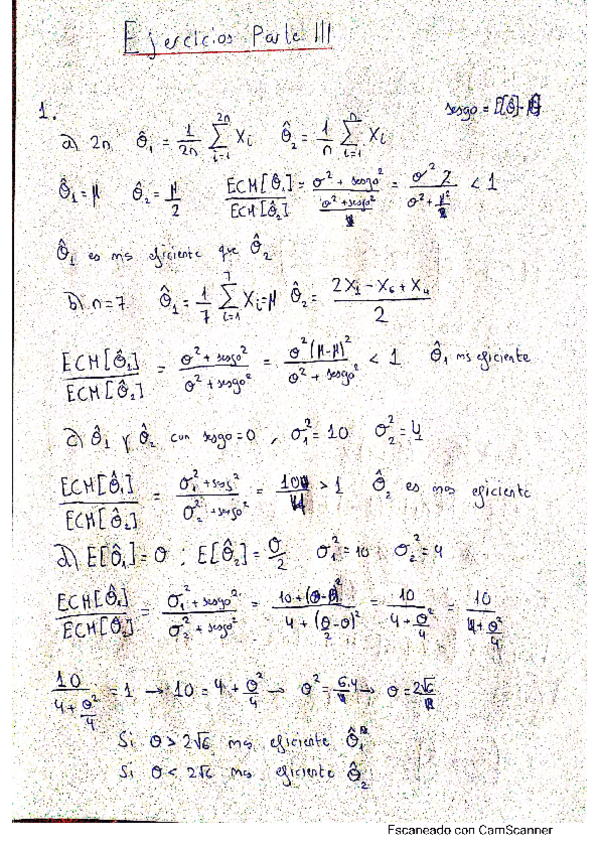 Ejercicios Parte III
1.
sesgo = E[θ̂]-θ
a) 2n θ̂₁ = 1/2n Σ_{i=1}^{2n} Xi θ̂₂ = 1/n Σ_{i=1}^{n} Xi
θ̂₁ = μ θ̂₂ = μ/2 ECM[θ̂₁]/ECM[θ̂₂] = σ² + sesgo² / = σ² 2 / < 1
θ̂₁ es ms eficiente que θ̂₂
b) n=7 θ̂₁ = 1/7 Σ_{i=1}^{7} Xi = μ θ̂₂ = (2X₁ - X₆ + X₄)/2
ECM[θ̂₁]/ECM[θ̂₂] = (σ² + sesgo²)/(σ² + sesgo²) = (σ² (μ-μ)²)/(σ² + sesgo²) < 1 θ̂₁ ms eficiente
c) θ̂₁ y θ̂₂ con sesgo=0, σ₁² = 10 σ₂² = 4
ECM[θ̂₁]/ECM[θ̂₂] = (σ₁² + ses²)/(σ₂² + sesgo²) = 10/4 > 1 θ̂₂ es mas eficiente
d) E[θ̂₁] = θ ; E[θ̂₂] = θ/2 σ₁² = 10 σ₂² = 4
ECM[θ̂₁]/ECM[θ̂₂] = (σ₁² + sesgo²)/(σ₂² + sesgo²) = (10+(θ-θ)²)/(4+(θ/2-θ)²) = 10/(4+θ²/4) = 10/(4+θ²/4)
10/(4+θ²/4) = 1 → 10 = 4 + θ²/4 → θ² = 6.4 → θ = 2√6
Si θ > 2√6 mas eficiente θ̂₁
Si θ < 2√6 mas eficiente θ̂₂
Escaneado con CamScanner